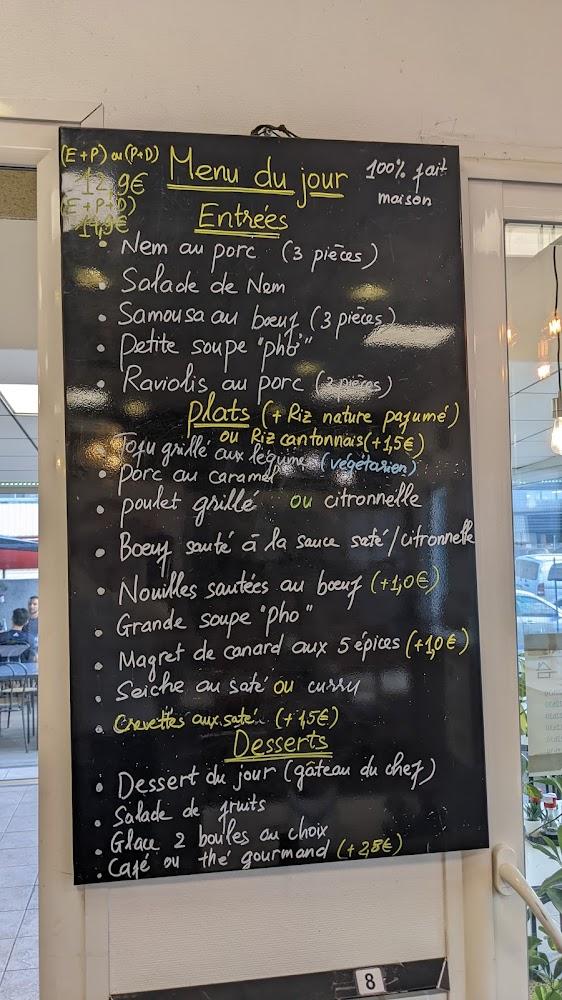 (E+P) ou (P+D)
12,9€
(E+P+D)
14,9€
Menu du jour
100% fait
maison
Entrées
• Nem au porc (3 pièces)
• Salade de Nem
• Samousa au bœuf (3 pièces)
• Petite soupe "phở"
• Raviolis au porc (3 pièces)
Plats (+ Riz nature parfumé)
ou Riz cantonnais (+1,5€)
• Tofu grillé aux légumes (végétarien)
• Porc au caramel
• poulet grillé ou citronnelle
• Boeuf sauté à la sauce saté/citronnelle
• Nouilles sautées au bœuf (+1,0€)
• Grande soupe "Pho"
• Magret de canard aux 5 épices (+1,0€)
• Seiche au saté ou curry
• Crevettes aux saté (+1,5€)
Desserts
• Dessert du jour (gâteau du chef)
• Salade de fruits
• Glace 2 boules au choix
• Café ou thé gourmand (+2,8€)
8